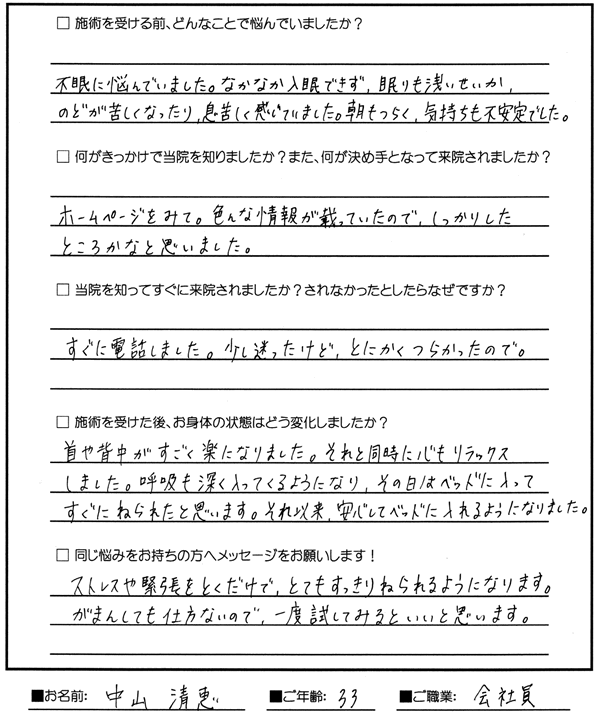 □ 施術を受ける前、どんなことで悩んでいましたか？
不眠に悩んでいました。なかなか入眠できず、眠りも浅いせいか、
のどが苦しくなったり、息苦しく感じていました。朝もつらく、気持ちも不安定でした。
□ 何がきっかけで当院を知りましたか？また、何が決め手となって来院されましたか？
ホームページをみて。色んな情報が載っていたので、しっかりした
ところかなと思いました。
□ 当院を知ってすぐに来院されましたか？されなかったとしたらなぜですか？
すぐに電話しました。少し迷ったけど、とにかくつらかったので。
□ 施術を受けた後、お身体の状態はどう変化しましたか？
首や背中がすごく楽になりました。それと同時に心もリラックス
しました。呼吸も深く入ってくるようになり、その日はベッドに入って
すぐにねられたと思います。それ以来、安心してベッドに入れるようになりました。
□ 同じ悩みをお持ちの方へメッセージをお願いします！
ストレスや緊張をとくだけで、とてもすっきりねられるようになります。
がまんしても仕方ないので、一度試してみるといいと思います。
■お名前: 中山 清恵 ■ご年齢: 33 ■ご職業: 会社員